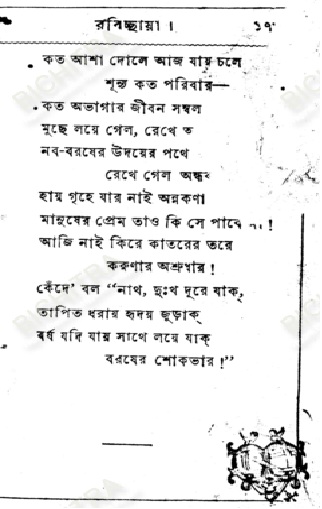 রবিচ্ছায়া।
কত আশা দোলে আজ যায় চলে
শূন্য কত পরিবার—
কত অভাগার জীবন সম্বল
মুছে লয়ে গেল, রেখে
নব-বরষের উদয়ের পথে
রেখে গেল
হায় গৃহে যার নাই অন্নকণা
মানুষের প্রেম তাও কি সে পাবে না!
আজি নাই কিরে কাতরের তরে
করুণার অশ্রুধার!
কেঁদে' বল “নাথ, দুঃখ দূরে যাক্,
তাপিত ধরার হৃদয় জুড়াক্
বর্ষ যদি যায় সাথে লয়ে যাক্
বরষের শোকভার!”